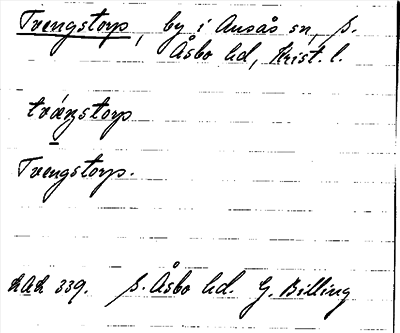 Tvengstorp, by i Ausås sn, S.
Åsbo hd, Krist. l.
Tvengstorp.
LAL 339. S. Åsbo hd. G. Billing